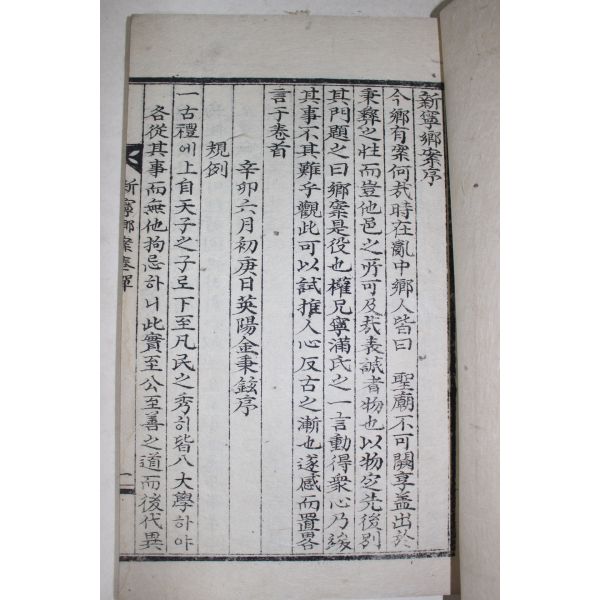 新寧鄕案序
今鄕有案何哉時在亂中鄕人皆曰 聖廟不可闕享益出於
秉彛之性而豈他邑之所可及哉表誠者物也以物之先後別
其門題之曰鄕案是役也權兄寧滿氏之一言動得衆心乃竣
其事不其難乎觀此可以試推人心反古之漸也遂感而置畧
言于卷首
辛卯六月初庚日英陽金秉鉉序
規例
一古禮에上自天子之子로下至凡民之秀히皆入大學하야
各從其事而無他拘忌하니此實至公至善之道而後代異
新寧鄕案 一